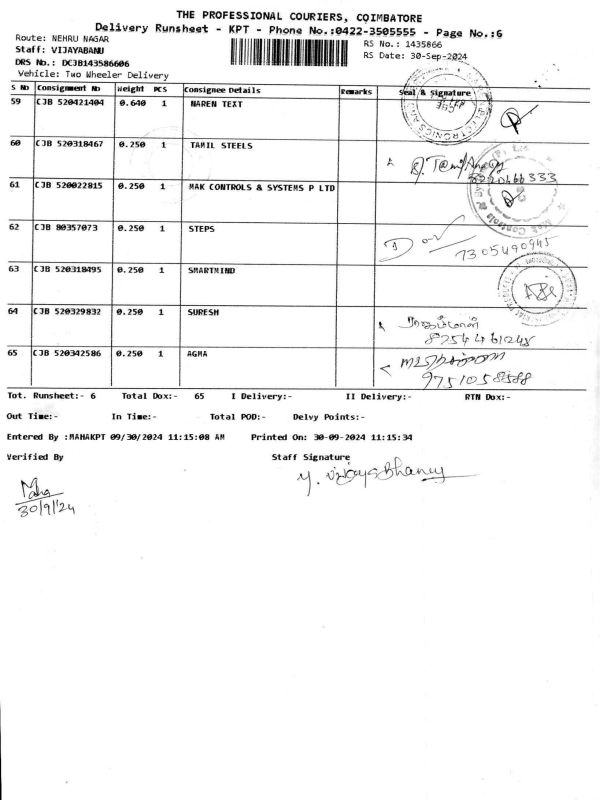 THE PROFESSIONAL COURIERS, COIMBATORE
Delivery Runsheet - KPT - Phone No.:0422-3505555 - Page No.:6
Route: NEHRU NAGAR
RS No.: 1435866
Staff: VIJAYABANU
RS Date: 30-Sep-2024
DRS No.: DCJB143586606
Vehicle: Two Wheeler Delivery
S No Consignment No Weight PCS Consignee Details Remarks Seal & Signature
59 CJB 520421404 0.640 1 NAREN TEXT
60 CJB 520318467 0.250 1 TAMIL STEELS
61 CJB 520022815 0.250 1 MAK CONTROLS & SYSTEMS P LTD
62 CJB 80357073 0.250 1 STEPS
7305490945
63 CJB 520318495 0.250 1 SMARTMIND
64 CJB 520329832 0.250 1 SURESH
8754461245
65 CJB 520342586 0.250 1 AGMA
9751058588
Tot. Runsheet:- 6 Total Dox:- 65 I Delivery:- II Delivery:- RTN Dox:-
Out Time:- In Time:- Total POD:- Delvy Points:-
Entered By :MAHAKPT 09/30/2024 11:15:08 AM Printed On: 30-09-2024 11:15:34
Verified By Staff Signature
Y. Vijaya Bhanu
Maha
30/9/24